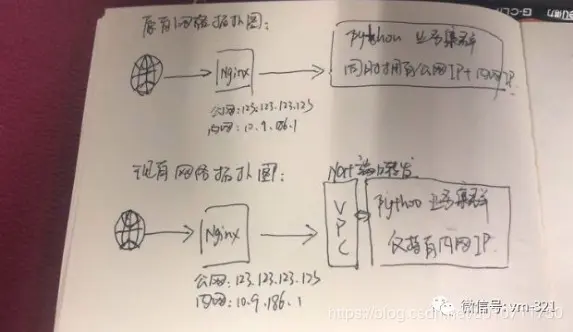 原有网络拓扑图:
Nginx
公网:123.123.123.123
内网:10.9.186.1
Python 业务集群
同时拥有公网IP+内网IP
现有网络拓扑图:
Nginx
公网:123.123.123.123
内网:10.9.186.1
Nat 端口转发
VPC
Python 业务集群
仅拥有内网IP
微信号: vm-321
https://blog.csdn.net